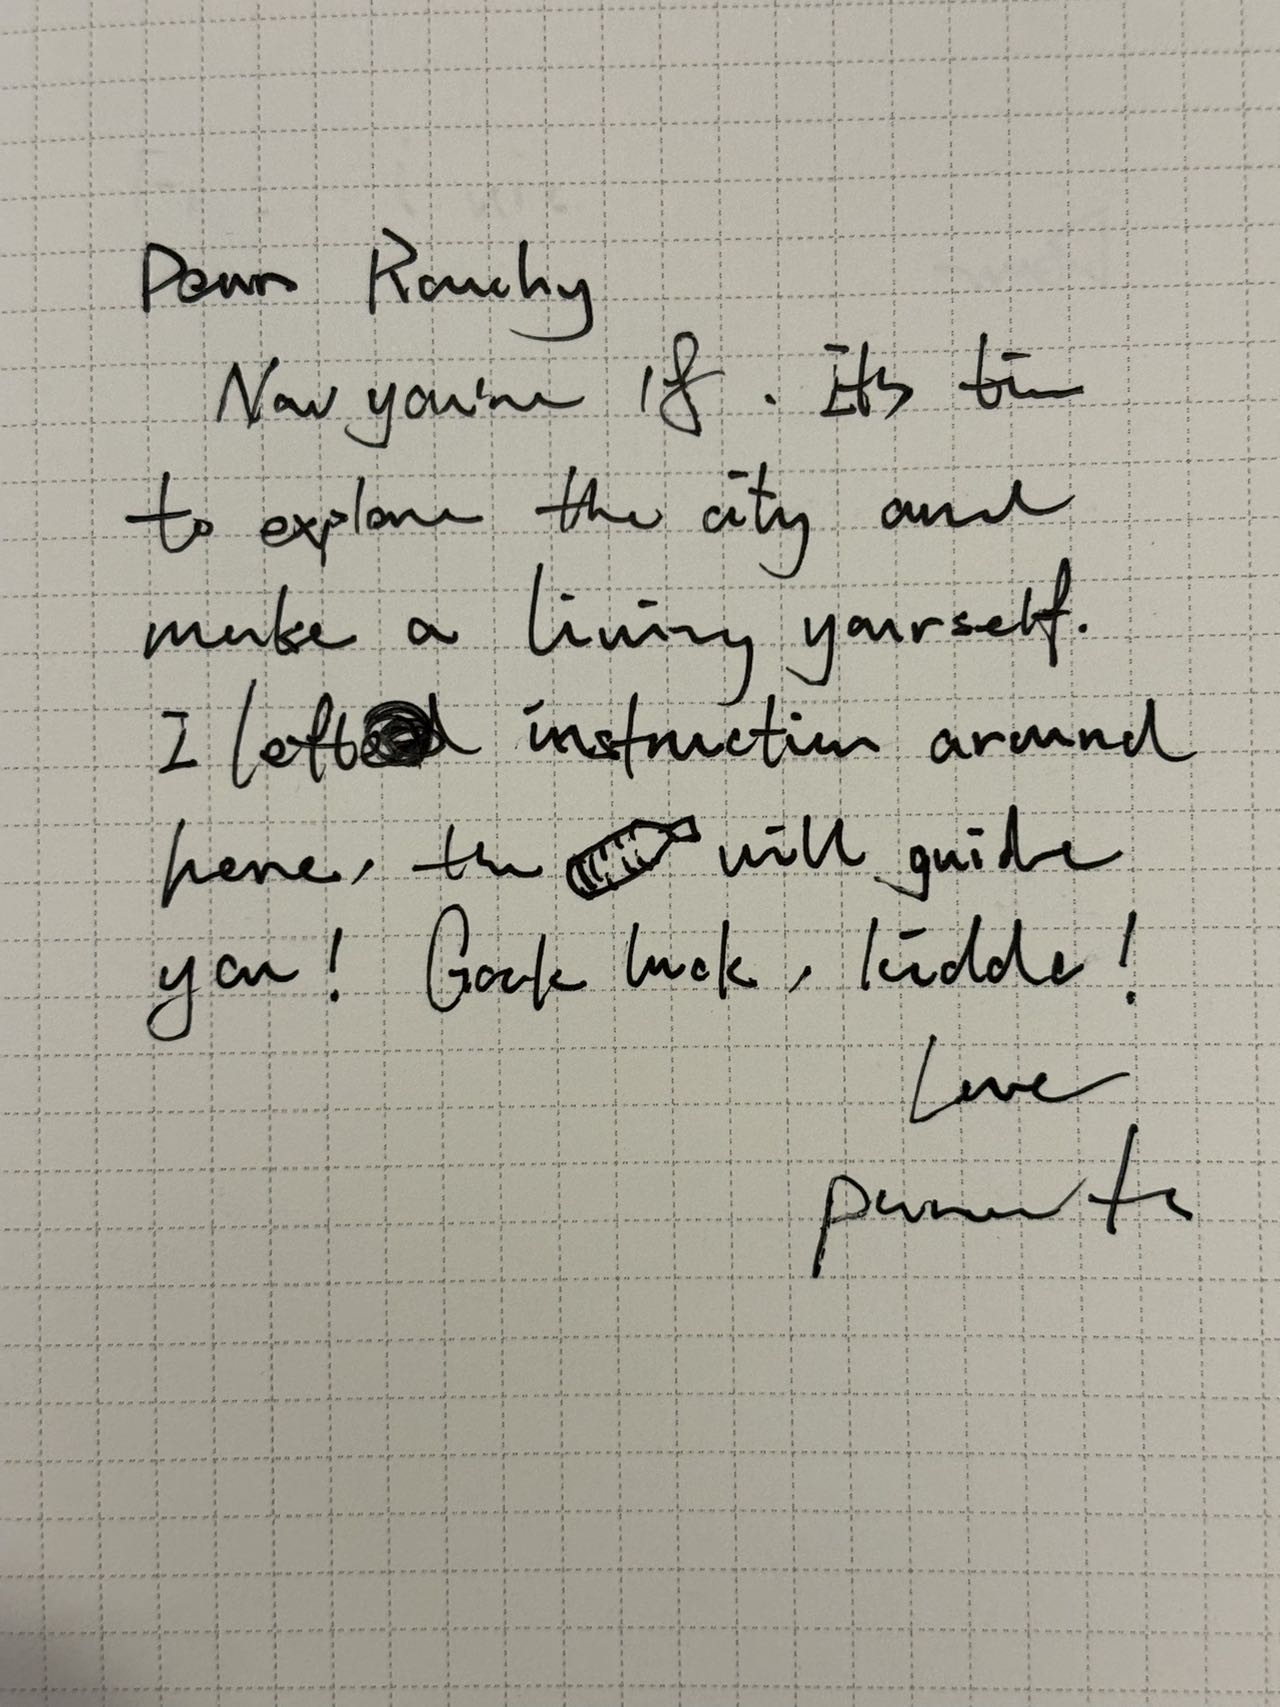 Dear
Now you're 18. It's time
to explore the city and
make a living yourself.
I left instruction around
here, the will guide
you! Good luck, kiddo!
Love
parents